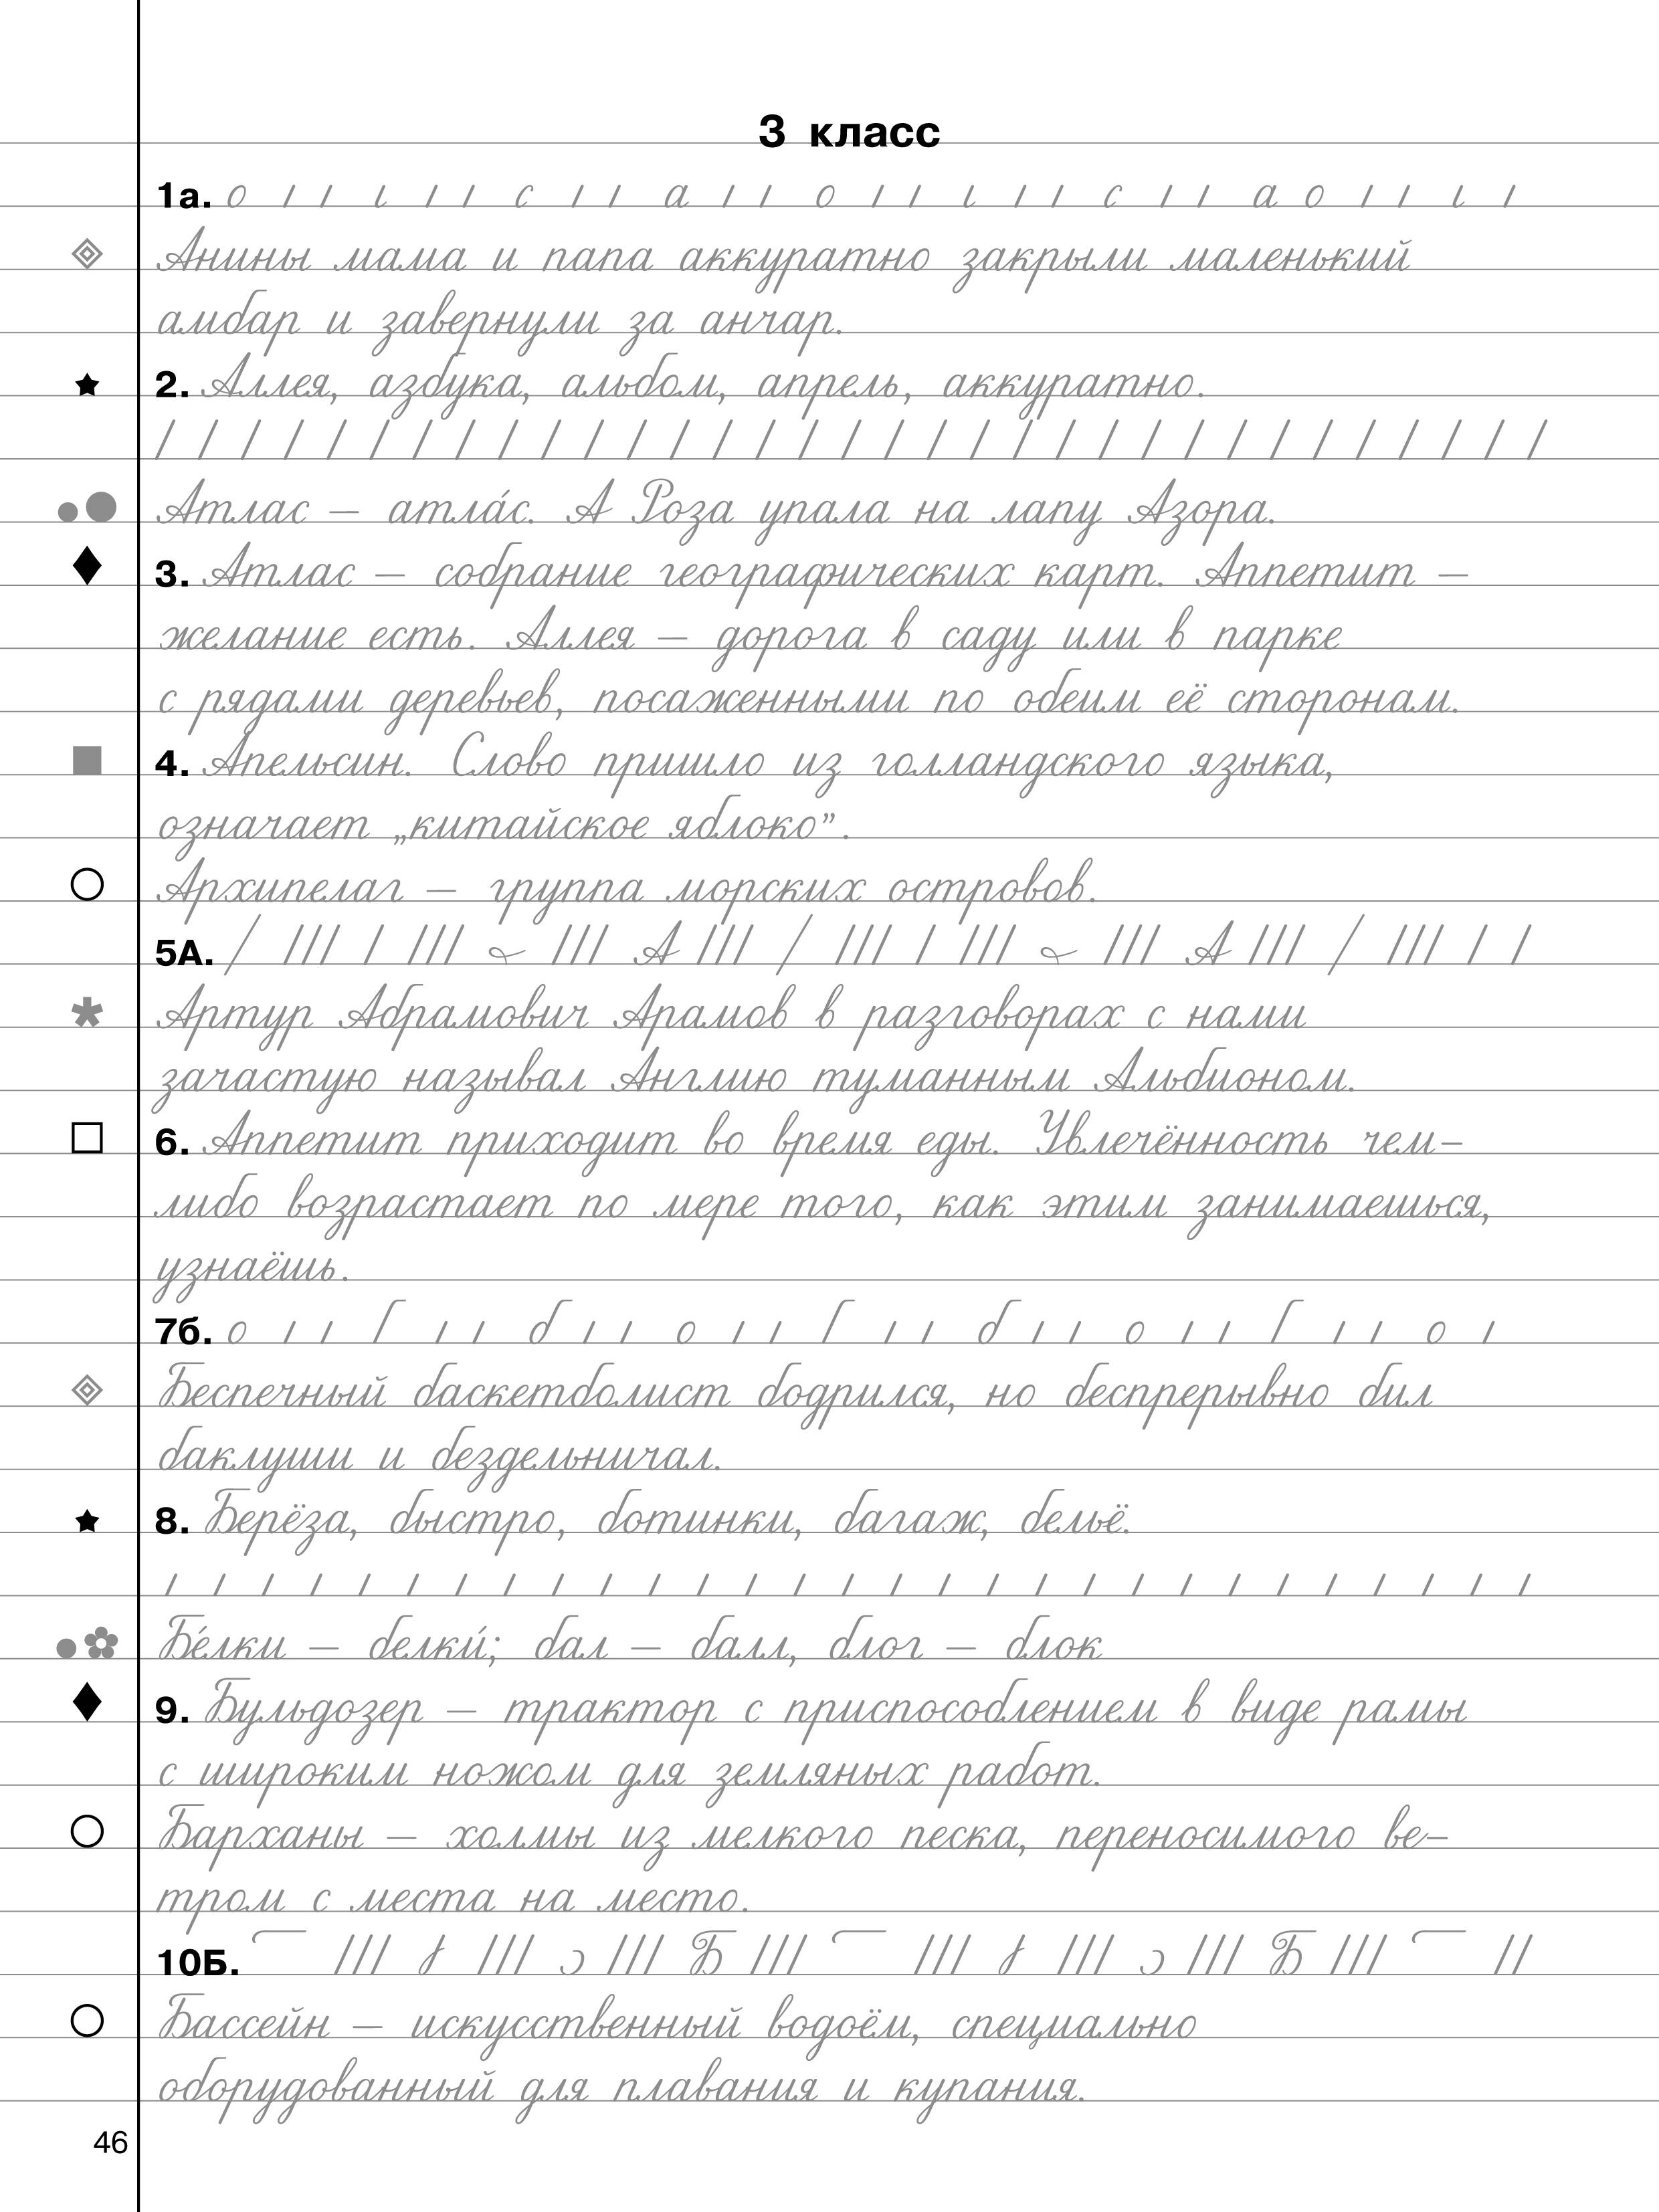 3 класс
1а. о ı ı ι ı ı с ı ı а ı ı о ı ı ι ı ı с ı ı а о ı ı ι ı
Анины мама и папа аккуратно закрыли маленький
амбар и завернули за анчар.
2. Аллея, азбука, альбом, апрель, аккуратно.
/ / / / / / / / / / / / / / / / / / / / / / / / / / / / / / / / /
Атлас – атла́с. А Роза упала на лапу Азора.
3. Атлас – собрание географических карт. Аппетит –
желание есть. Аллея – дорога в саду или в парке
с рядами деревьев, посаженными по обеим её сторонам.
4. Апельсин. Слово пришло из голландского языка,
означает „китайское яблоко”.
Архипелаг – группа морских островов.
5А. / /// / /// /// А /// / /// / /// /// А /// / /// / /
Артур Абрамович Арамов в разговорах с нами
зачастую называл Англию туманным Альбионом.
6. Аппетит приходит во время еды. Увлечённость чем-
либо возрастает по мере того, как этим занимаешься,
узнаёшь.
7б. о ı ı ı ı б ı ı о ı ı ı ı б ı ı о ı ı ı ı о ı
Беспечный баскетболист бодрился, но беспрерывно бил
баклуши и бездельничал.
8. Берёза, быстро, ботинки, багаж, бельё.
/ / / / / / / / / / / / / / / / / / / / / / / / / / / / /
Бе́лки – белки́; бал – балл, блог – блок
9. Бульдозер – трактор с приспособлением в виде рамы
с широким ножом для земляных работ.
Барханы – холмы из мелкого песка, переносимого ве-
тром с места на место.
10Б. /// /// /// Б /// /// /// /// Б /// //
Бассейн – искусственный водоём, специально
оборудованный для плавания и купания.
46